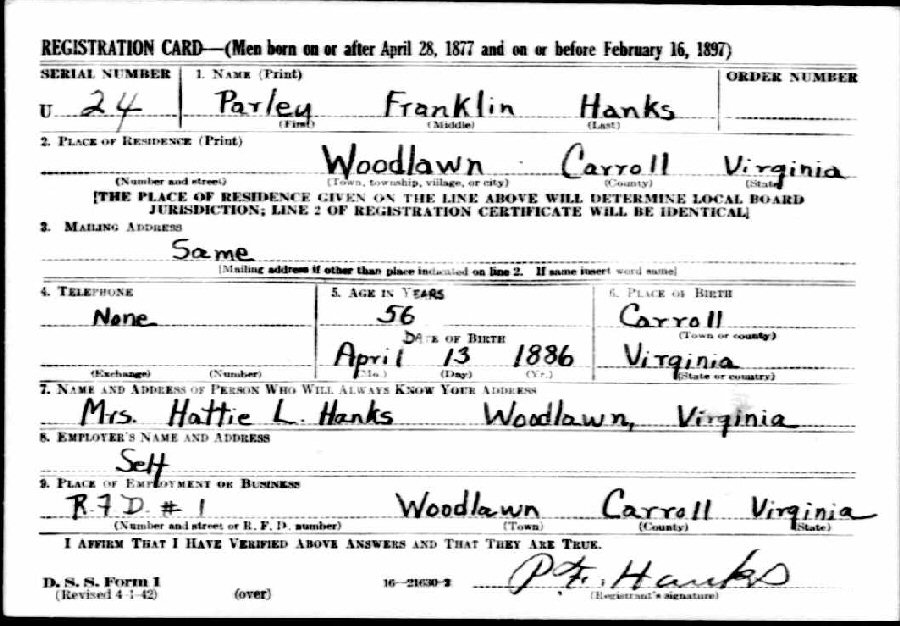 REGISTRATION CARD—(Men born on or after April 28, 1877 and on or before February 16, 1897)
SERIAL NUMBER 1. NAME (Print) ORDER NUMBER
U 24 Parley Franklin Hanks
(First) (Middle) (Last)
2. PLACE OF RESIDENCE (Print)
Woodlawn Carroll Virginia
(Number and street) (Town, township, village, or city) (County) (State)
[THE PLACE OF RESIDENCE GIVEN ON THE LINE ABOVE WILL DETERMINE LOCAL BOARD
JURISDICTION; LINE 2 OF REGISTRATION CERTIFICATE WILL BE IDENTICAL]
3. MAILING ADDRESS
Same
[Mailing address if other than place indicated on line 2. If same insert word same]
4. TELEPHONE 5. AGE IN YEARS 6. PLACE OF BIRTH
None 56 Carroll
DATE OF BIRTH (Town or county)
April 13 1886 Virginia
(Exchange) (Number) (Mo.) (Day) (Yr.) (State or country)
7. NAME AND ADDRESS OF PERSON WHO WILL ALWAYS KNOW YOUR ADDRESS
Mrs. Hattie L. Hanks Woodlawn, Virginia
8. EMPLOYER'S NAME AND ADDRESS
Self
9. PLACE OF EMPLOYMENT OR BUSINESS
R.F.D. # 1 Woodlawn Carroll Virginia
(Number and street or R. F. D. number) (Town) (County) (State)
I AFFIRM THAT I HAVE VERIFIED ABOVE ANSWERS AND THAT THEY ARE TRUE.
D. S. S. Form 1 16—21630-2 P. F. Hanks
(Revised 4-1-42) (over) (Registrant's signature)